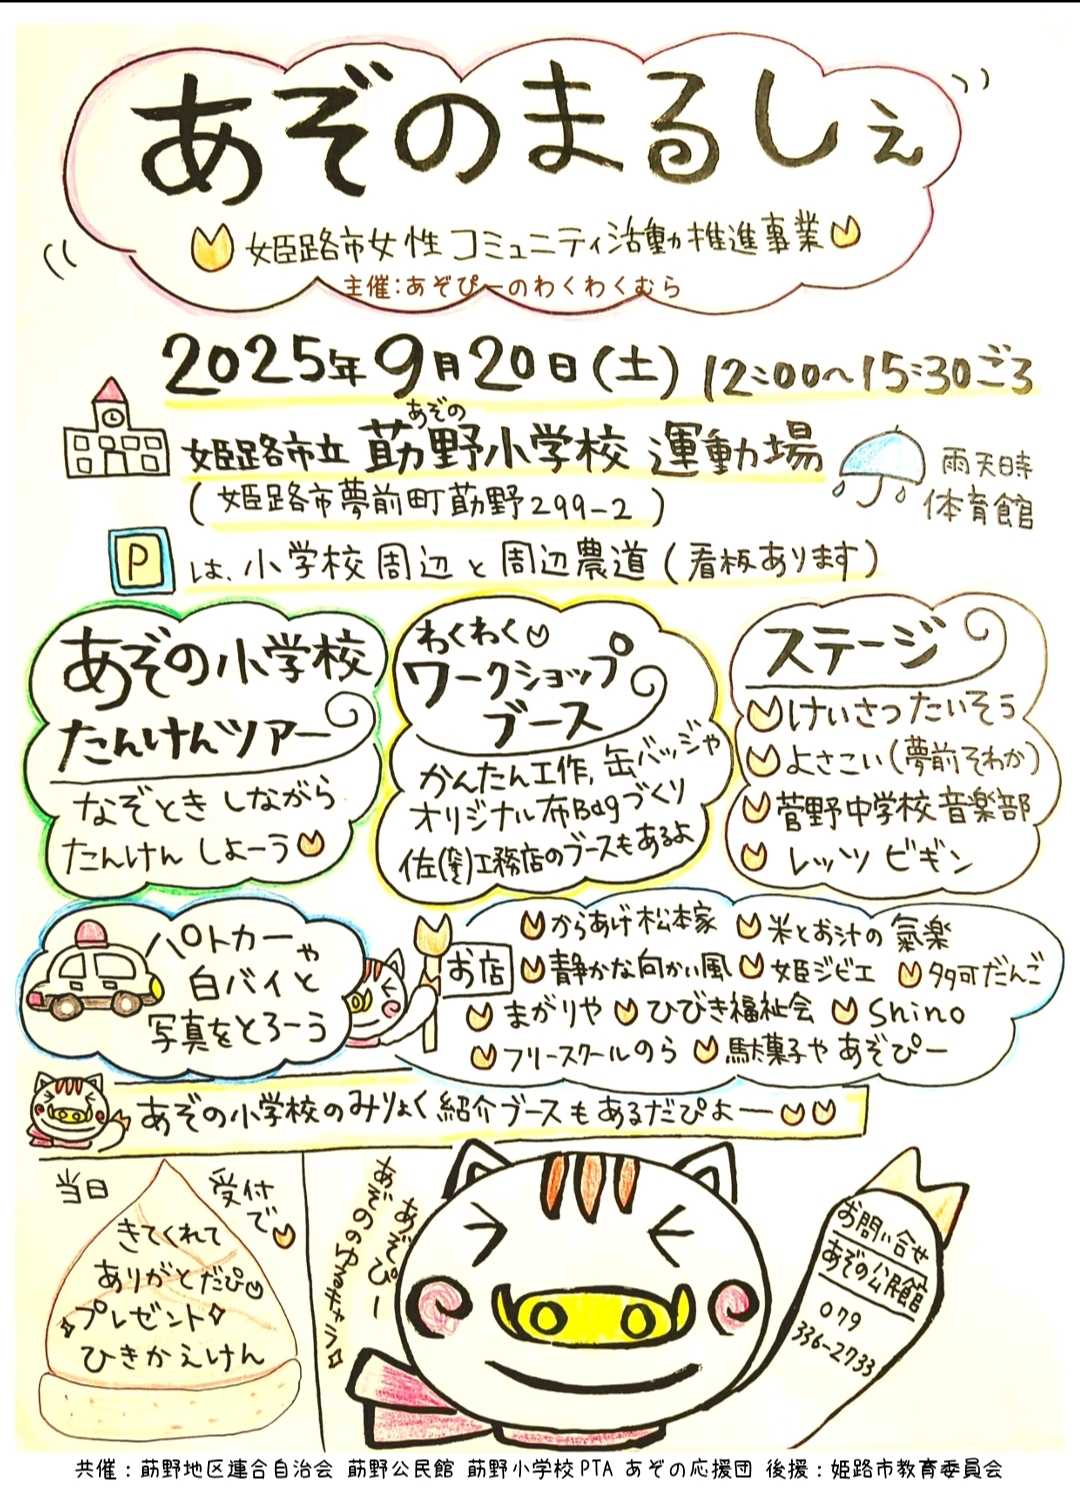 あぞのまるしぇ
姫路市女性コミュニティ活動推進事業
主催:あぞぴーのわくわくむら
2025年9月20日(土) 12:00〜15:30ごろ
あぞの
姫路市立 莇野小学校 運動場
(姫路市夢前町莇野299-2)
雨天時
体育館
P は、小学校周辺と周辺農道(看板あります)
あぞの小学校
たんけんツアー
なぞときしながら
たんけんしよーう
わくわく
ワークショップ
ブース
かんたん工作,缶バッジや
オリジナル布Bagづくり
佐(窪)工務店のブースもあるよ
ステージ
けいさつたいそう
よさこい(夢前そわか)
菅野中学校音楽部
レッツビギン
パトカーや
白バイと
写真をとろーう
お店
からあげ松本家 米とお汁の氣楽
静かな向かい風 姫ジビエ 夛可だんご
まがりや ひびき福祉会 Shino
フリースクールのら 駄菓子やあぞぴー
あぞの小学校のみりょく紹介ブースもあるだぴよー
当日
受付で
きてくれて
ありがとだぴ
プレゼント
ひきかえけん
あぞぴー
あぞののゆるキャラ
お問い合せ
あぞの公民館
079
336-2733
共催:莇野地区連合自治会 莇野公民館 莇野小学校PTA あぞの応援団 後援:姫路市教育委員会